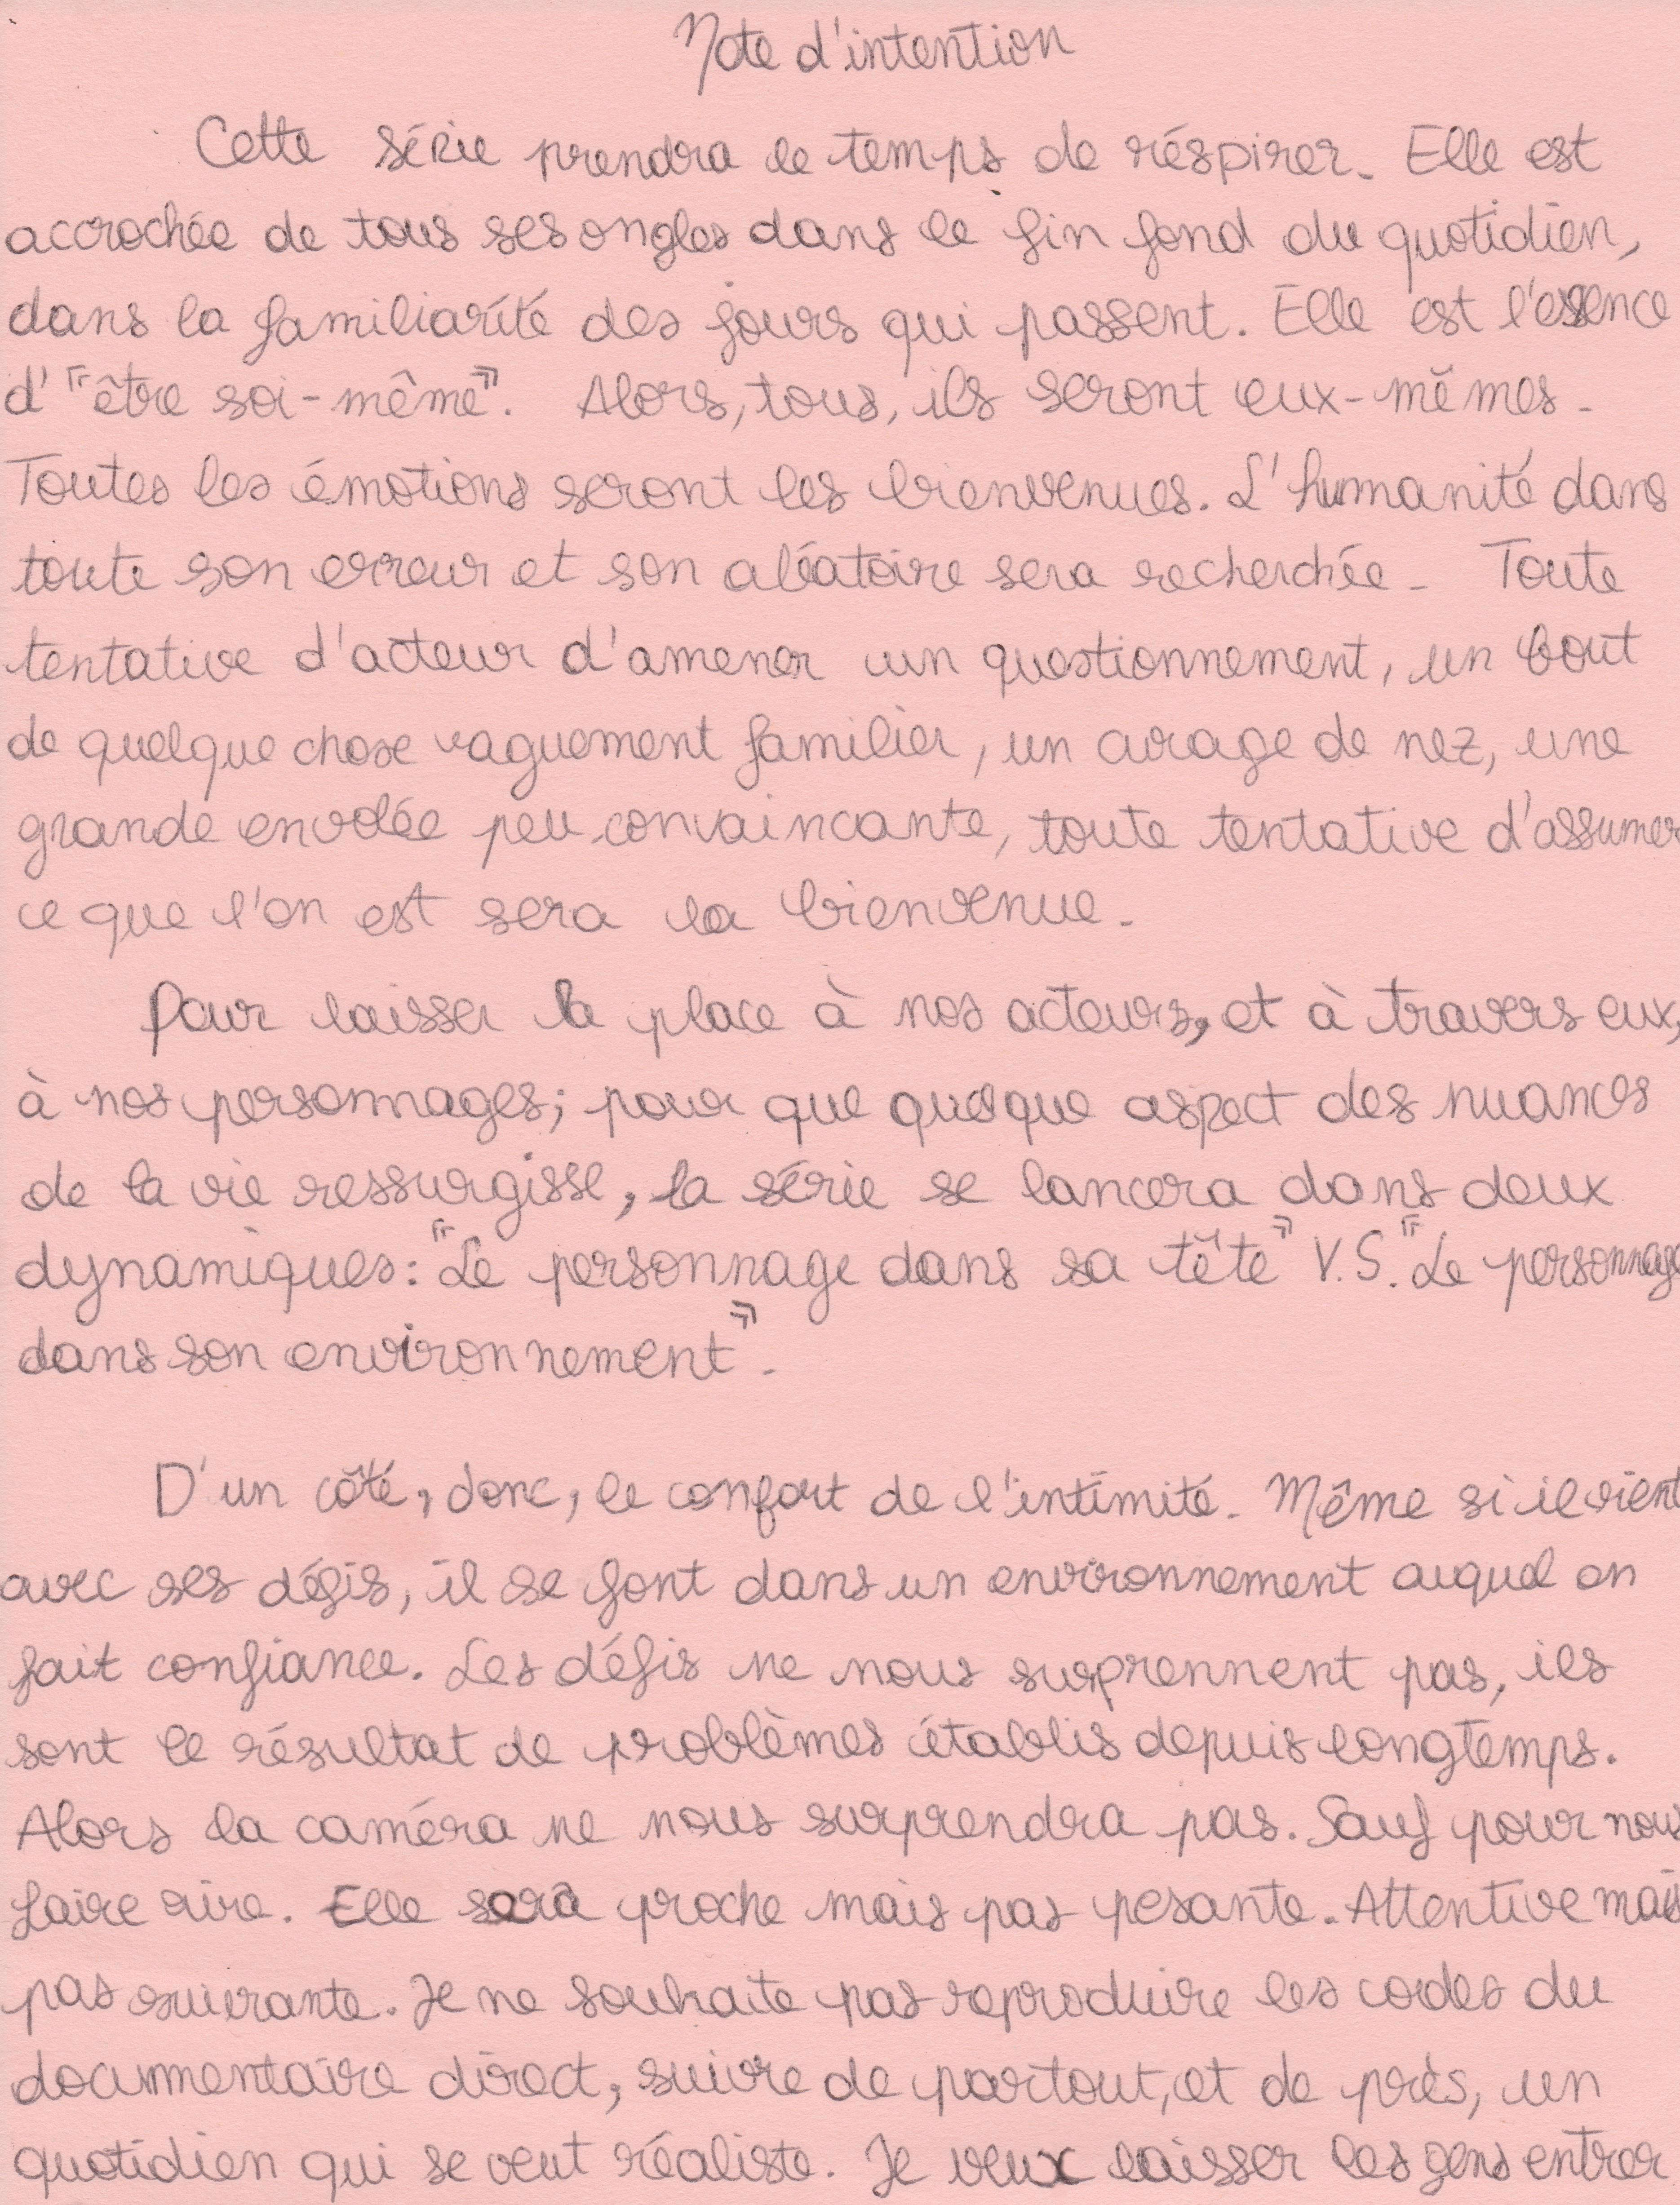 Note d'intention
Cette série prendra le temps de réspirer. Elle est
accrochée de tous ses ongles dans le fin fond du quotidien,
dans la familiarité des jours qui passent. Elle est l'essence
d' « être soi-même ». Alors, tous, ils seront eux-mêmes.
Toutes les émotions seront les bienvenues. L'humanité dans
toute son erreur et son aléatoire sera recherchée. Toute
tentative d'acteur d'amener un questionnement, un bout
de quelque chose vaguement familier, un curage de nez, une
grande envolée peu convaincante, toute tentative d'assumer
ce que l'on est sera la bienvenue.
Pour laisser la place à nos acteurs, et à travers eux,
à nos personnages; pour que quelque aspect des nuances
de la vie ressurgisse, la série se lancera dans deux
dynamiques: « Le personnage dans sa tête » V.S. « Le personnage
dans son environnement ».
D'un côté, donc, le confort de l'intimité. Même si il vient
avec ses défis, il se font dans un environnement auquel on
fait confiance. Les défis ne nous surprennent pas, ils
sont le résultat de problèmes établis depuis longtemps.
Alors la caméra ne nous surprendra pas. Sauf pour nous
faire rire. Elle sera proche mais pas pesante. Attentive mais
pas suivante. Je ne souhaite pas reproduire les codes du
documentaire direct, suivre de partout, et de près, un
quotidien qui se veut réaliste. Je veux laisser les gens entrer